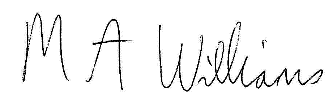 M A Williams